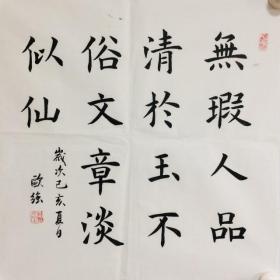 無瑕人品
清於玉不
俗文章淡
似仙
歲次己亥夏月
歐強